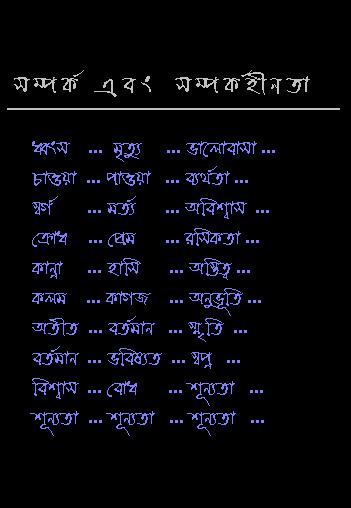 সম্পর্ক এবং সম্পর্কহীনতা
ধ্বংস ... মৃত্যু ... ভালোবাসা ...
চাওয়া ... পাওয়া ... ব্যর্থতা ...
স্বর্গ ... মর্ত্য ... অবিশ্বাস ...
ক্রোধ ... প্রেম ... রসিকতা ...
কান্না ... হাসি ... অস্তিত্ব ...
কলম ... কাগজ ... অনুভূতি ...
অতীত ... বর্তমান ... স্মৃতি ...
বর্তমান ... ভবিষ্যত ... স্বপ্ন ...
বিশ্বাস ... বোধ ... শূন্যতা ...
শূন্যতা ... শূন্যতা ... শূন্যতা ...